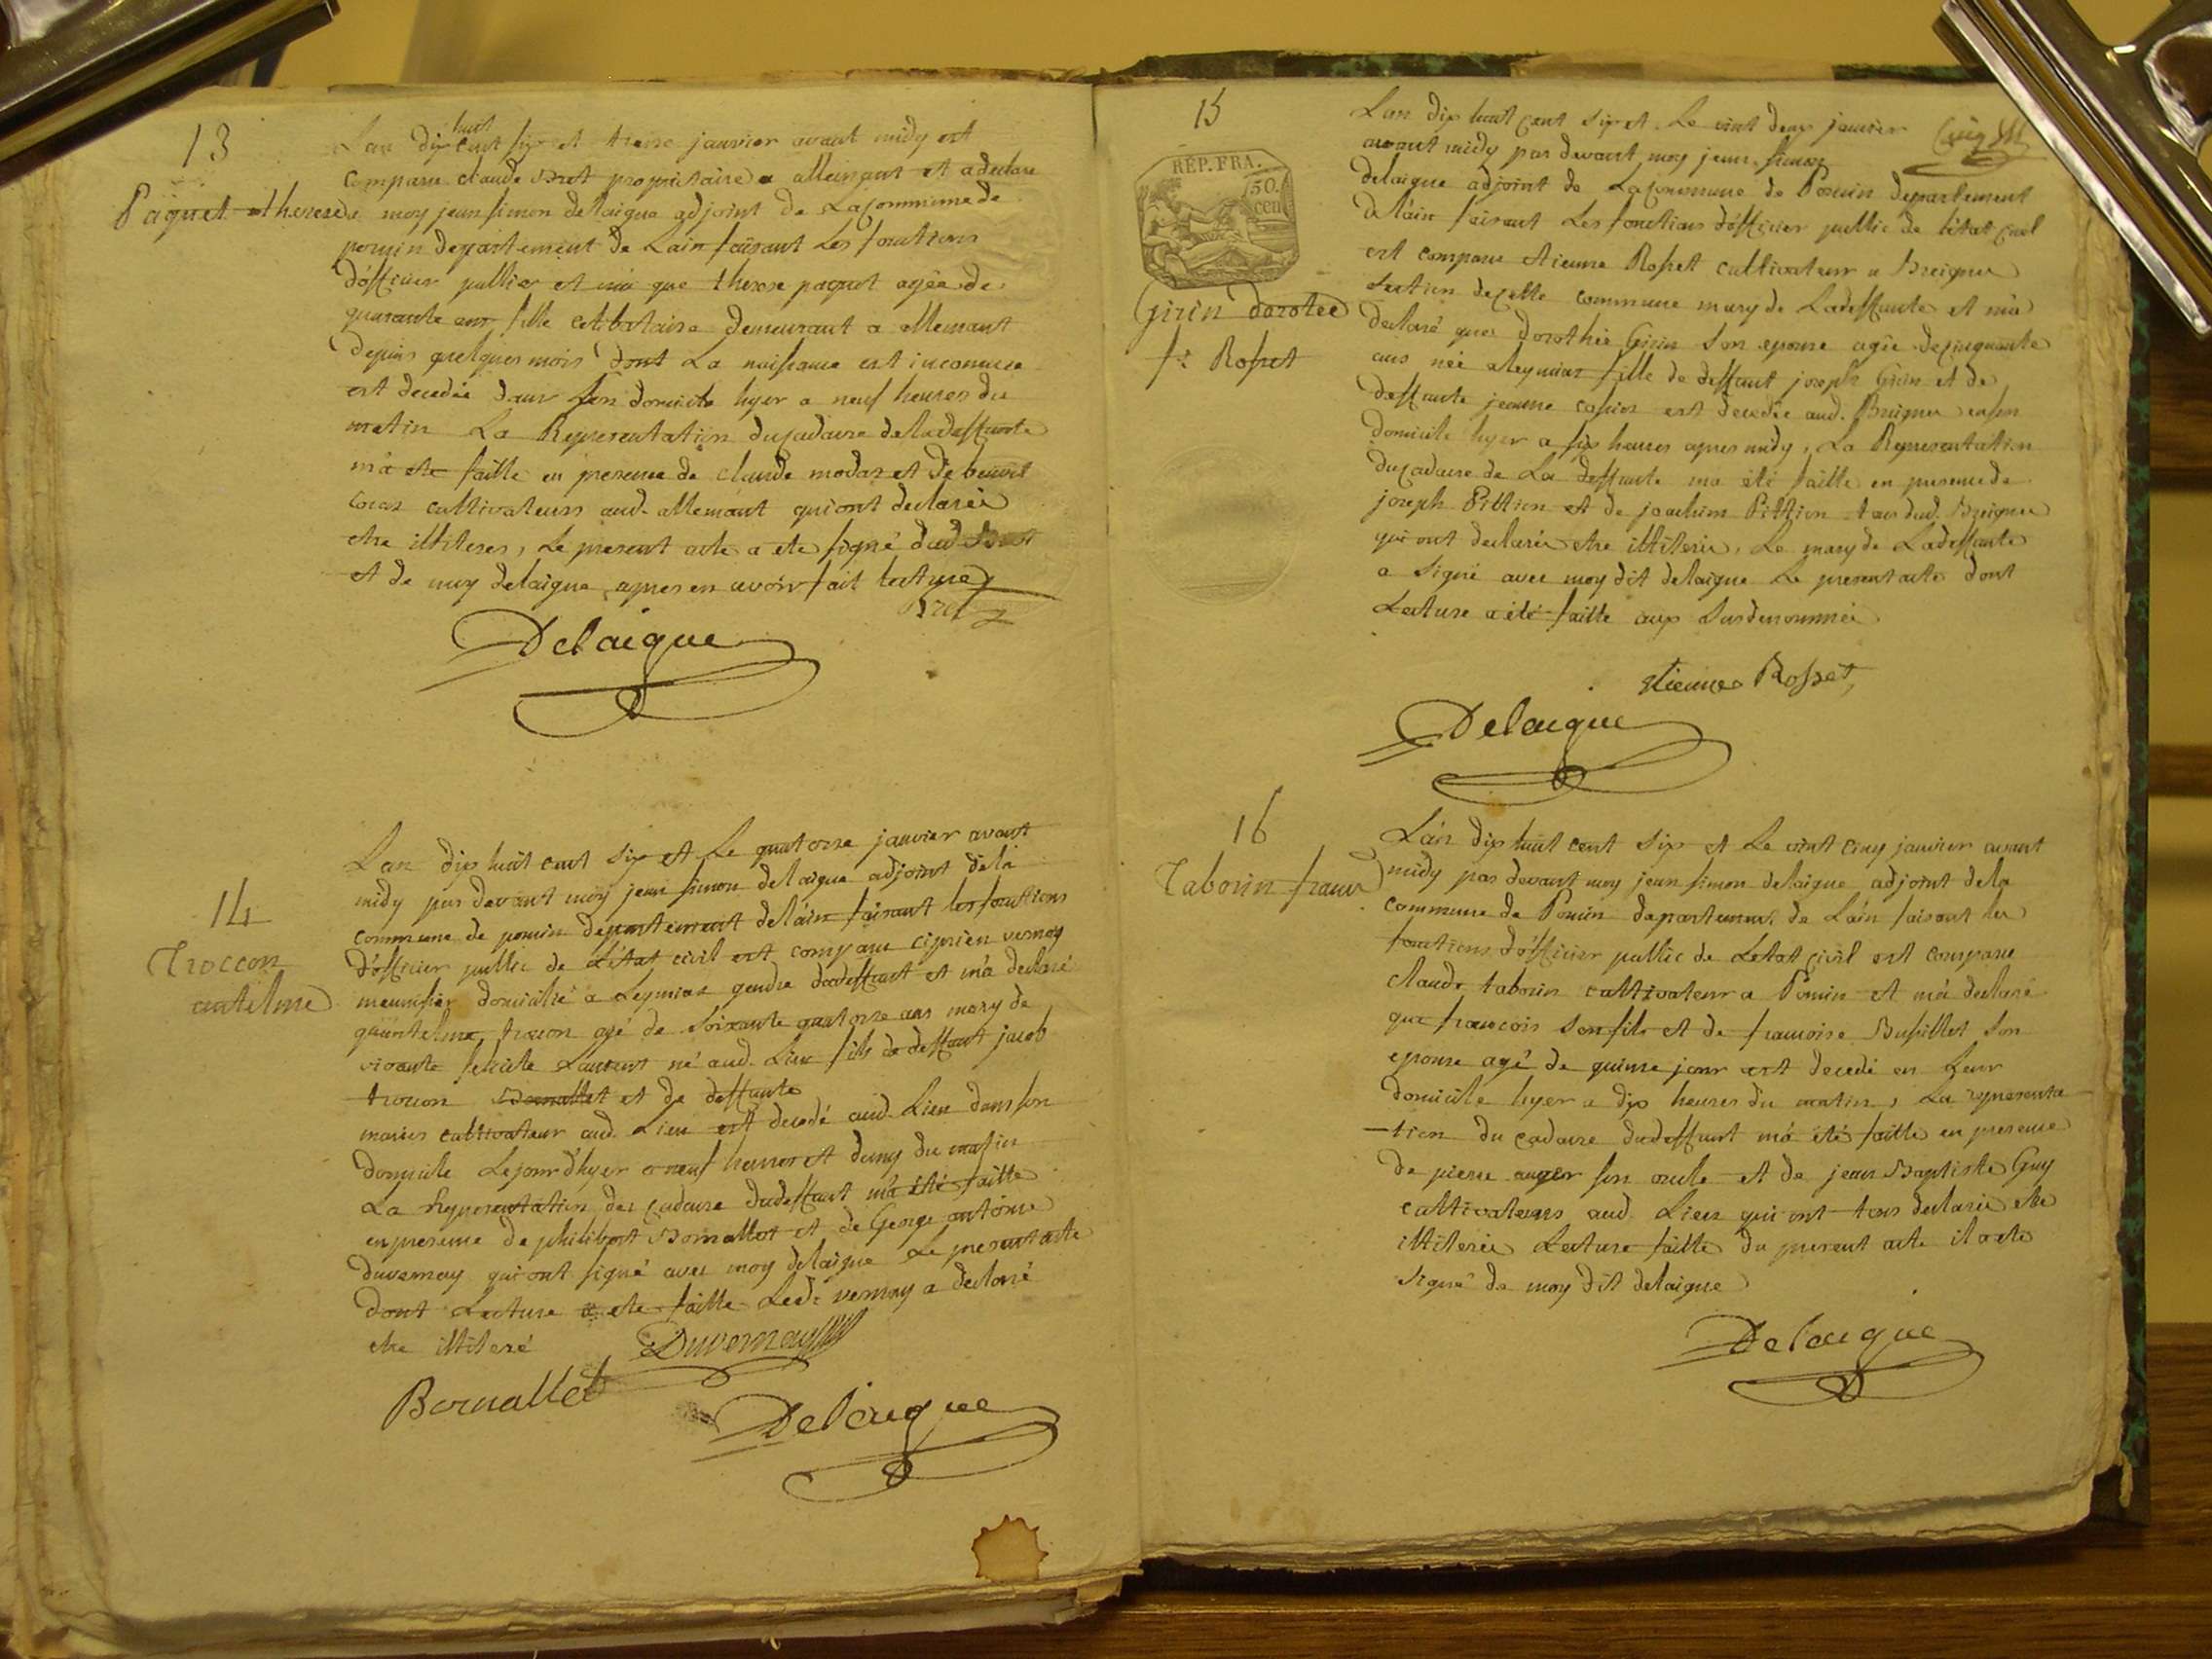 13
Paquet therese
Lan dix huit cent six et treise janvier avant midy est
comparu claude Bret propriétaire a allemant et a declare
a moy jean simon delaigue adjoint de La commune de
poncin departement de Lain faisant Les fonctions
d'officier publiee et m'a que therese paquet agée de
quarante ans fille celibataire demeurant a allemant
depuis quelques mois dont La naissance est inconnue
est decedée dans son domicile hyer a neuf heures du
matin La Representation du cadavre de la deffunte
m'a ete faitte en presence de claude modas et de benoit
cultivateurs aud. allemant qui ont declarée
etre illiteres, Le present acte a ete signé dud Bret
et de moy delaigue apres en avoir fait lecture
Bret
Delaigue
14
Troccon
antelme
Lan dix huit cent six et Le quatorse janvier avant
midy par devant moy jean simon delaigue adjoint de la
commune de poncin departement de lain faisant les fonctions
d'officier public de L'état civil est comparu ciprien vernay
meunsier domicilié a Leymiaz gendre du deffunt et m'a declaré
qu'antelme trocon agé de soixante quatorse ans mary de
vivante felicite Laurent né aud. Lieu fils de deffunt jacob
trocon Bornallet et de deffunte
maries cultivateur aud Lieu est decedé aud. Lieu dans son
domicile Le jour d'hyer a neuf heures et demy du matin
La Representation du cadavre du deffunt m'a été faitte
en presence de philibert Bornallet et de George antoine
duvernay qui ont signé avec moy delaigue Le present acte
dont Lecture a ete faitte Led. vernay a declaré
etre illiteré
Duvernay
Bornallet
Delaigue
15
REP. FRA.
50.
cen
Girin dorotée
fe Rosset
Lan dix huit cent six et Le vint deux janvier
avant midy par devant moy jean simon
delaigue adjoint de La commune de Poncin departement
de L'ain faisant Les fonctions d'officier public de l'état civil
est comparu etienne Rosset cultivateur a Breignes
section de cette commune mary de La deffunte et m'a
declaré que dorothée Girin son epouse agée de cinquante
ans née a leymiaz fille de deffunt joseph Girin et de
deffunte jeanne est decedée aud. Breignes en son
domicile hyer a six heures apres midy, La Representation
du cadavre de La deffunte ma été faitte en presence de
joseph Pittion et de joachim Pittion tous dud. Breignes
qui ont declarée etre illiterée, Le mary de La deffunte
a signé avec moy dit delaigue Le present acte dont
Lecture a été faitte aux susdenommée
etienne Rosset
Delaigue
16
Taborin franc
L'an dix huit cent six et Le vint cinq janvier avant
midy par devant moy jean simon delaigue adjoint de la
commune de Poncin departement de L'ain faisant les
fonctions d'officier public de L'etat civil est comparu
claude taborin cultivateur a Poncin et m'a declaré
que francois son fils et de francoise Bussillet son
epouse agé de quinse jour est decedé en Leur
domicile hyer a dix heures du matin, La representa
-tion du cadavre du deffunt m'a été faitte en presence
de pierre auger son oncle et de jean Baptiste Guy
cultivateurs aud. Lieu qui ont tous declarée etre
illiterée Lecture faitte du present acte il a ete
signé de moy dit delaigue
Delaigue